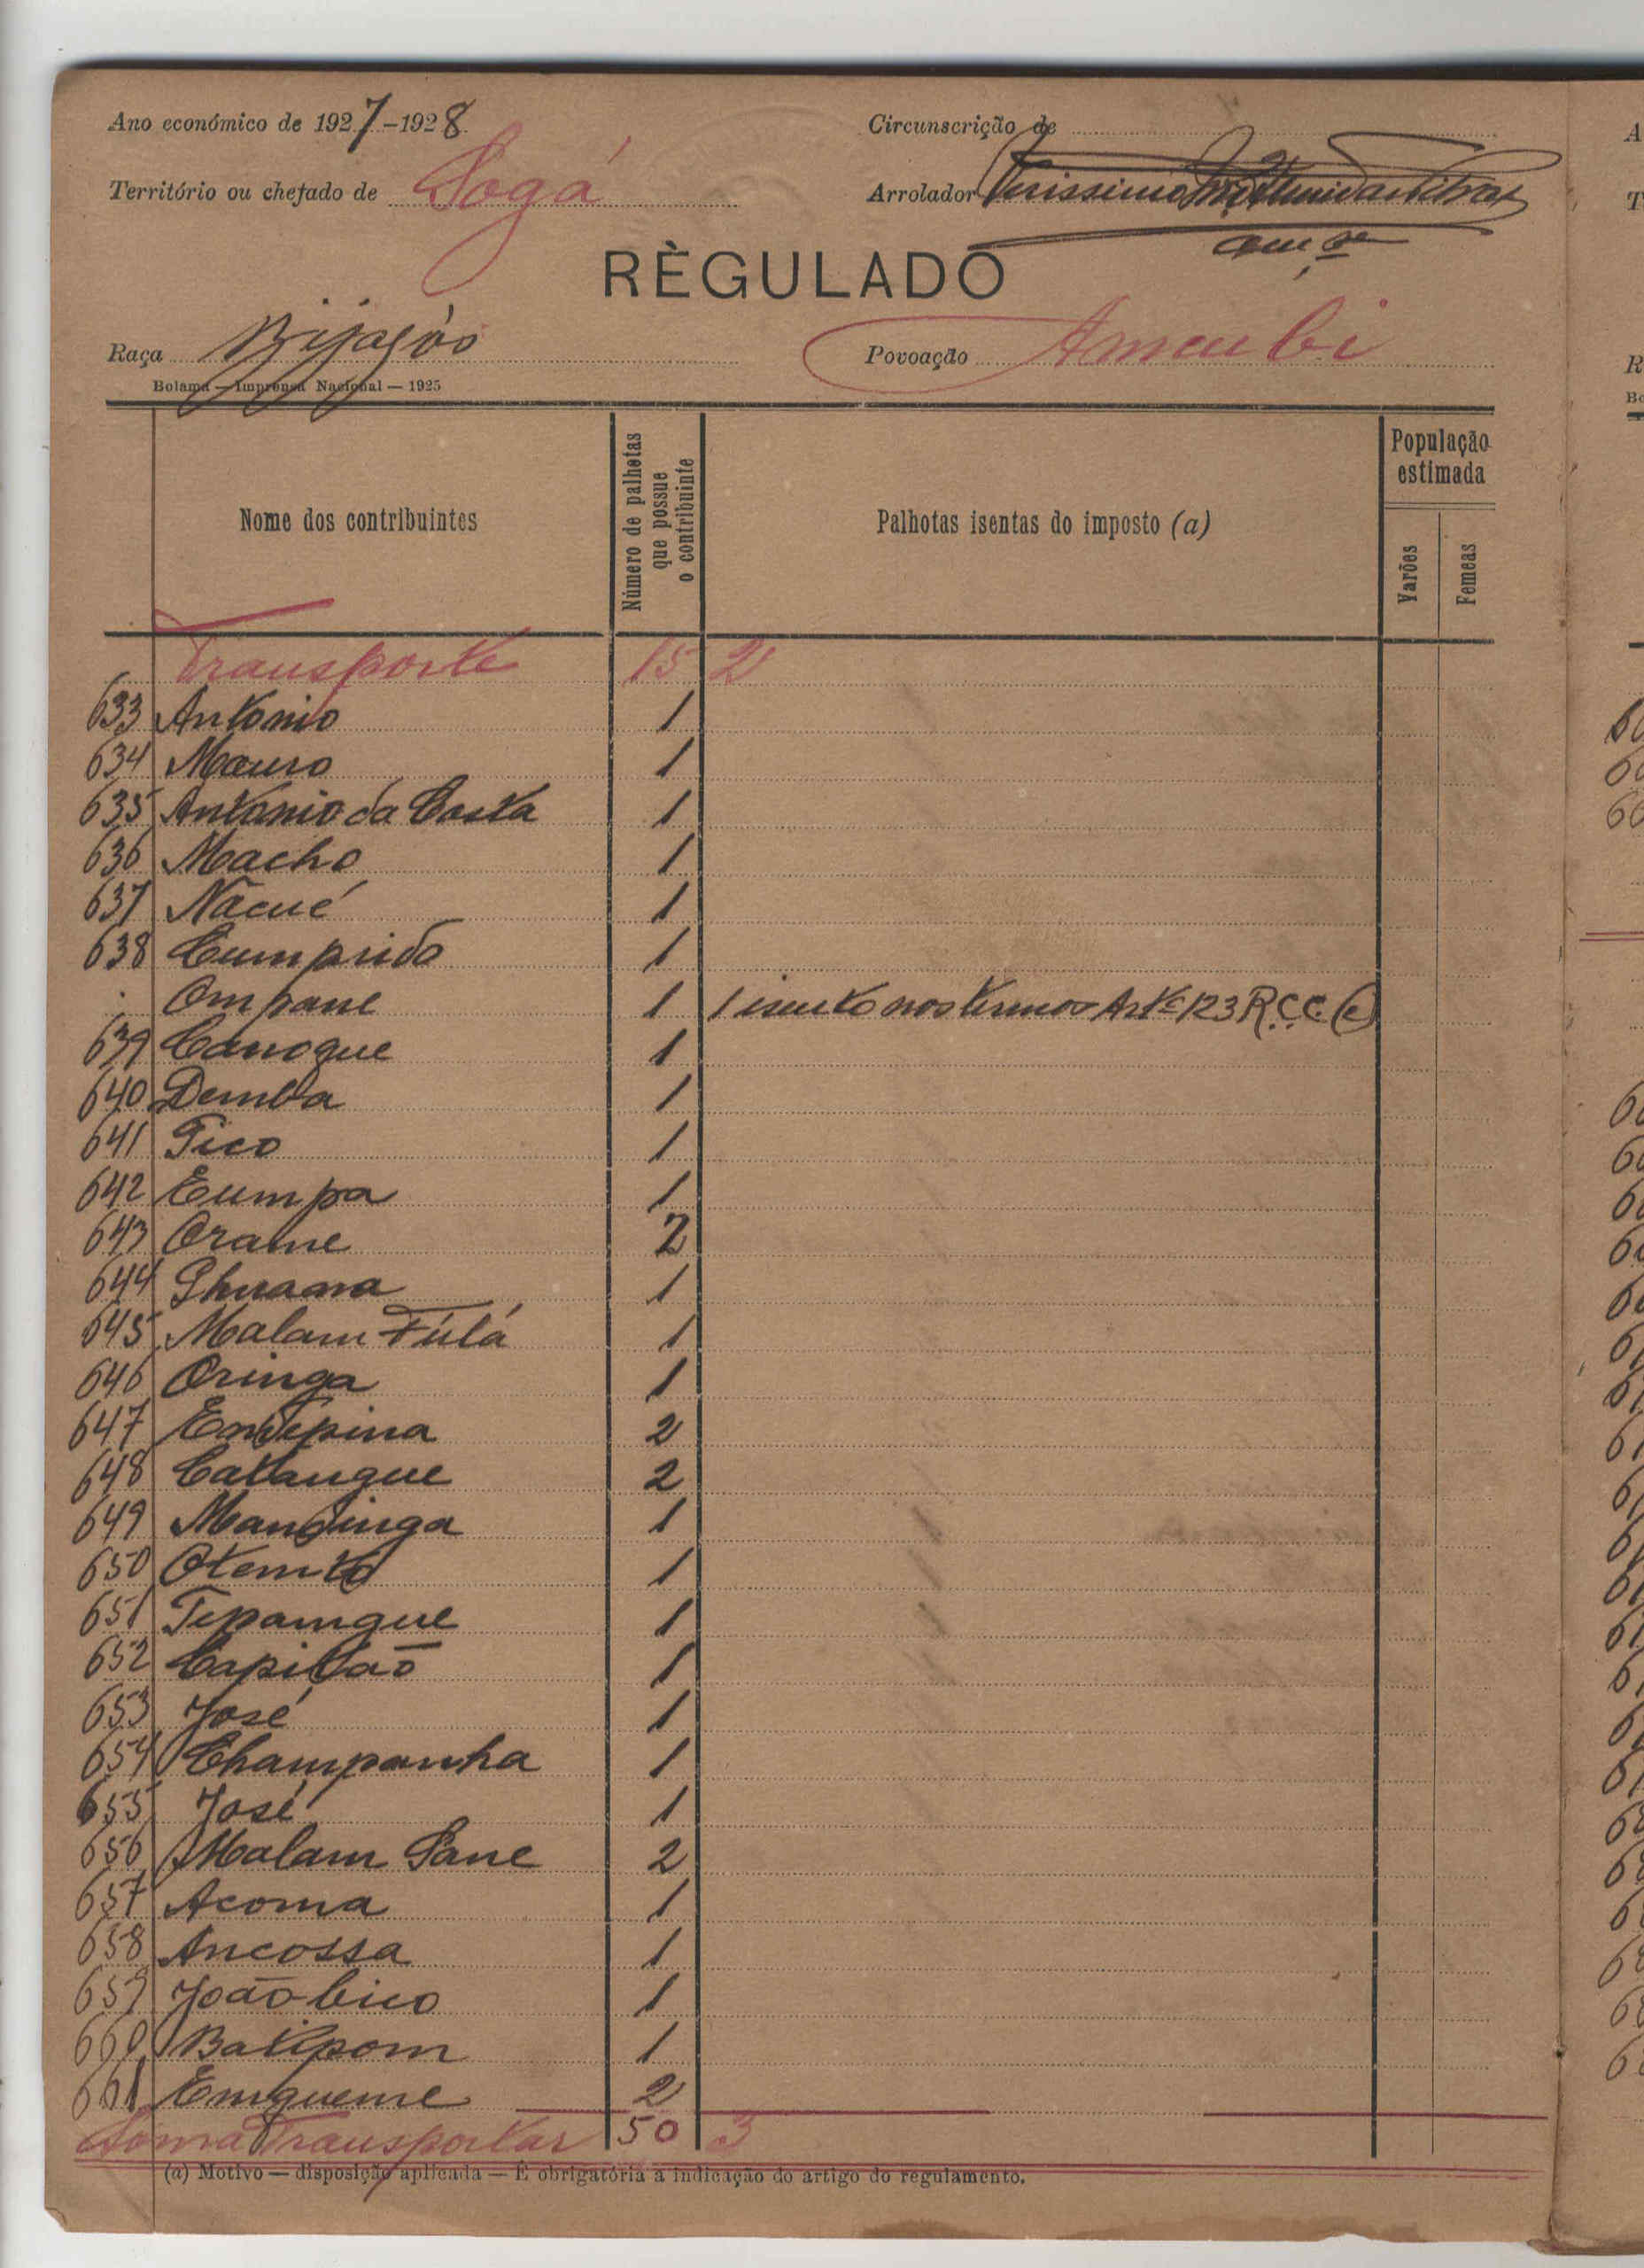 Ano económico de 1927-1928
Circunscrição de
Território ou chefado de Sogá
Arrolador Verissimo
RÈGULADO
Raça Bijagós
Povoação
Bolama — Imprensa Nacional — 1925
Nome dos contribuintes
Número de palhotas que possue o contribuinte
Palhotas isentas do imposto (a)
População estimada
Varões
Femeas
Transporte 15 2
633 Antonio 1
634 Mauro 1
635 Antonio da Costa 1
636 Macho 1
637 Nácué 1
638 Cumprido 1
Ompane 1 1 isento nos termos Artº 123 R.C.C. (e)
639 Canogue 1
640 Demba 1
641 Tico 1
642 Eumpa 1
643 Orame 2
644 1
645 Malam Fúlá 1
646 Oringa 1
647 Endepina 2
648 Catangue 2
649 Mandinga 1
650 Otemto 1
651 Tepamgue 1
652 Capitão 1
653 José 1
654 Champanha 1
655 José 1
656 Malam Sane 2
657 Acoma 1
658 Ancossa 1
659 João bico 1
660 Batipom 1
661 Emgueme 2
Soma Transportar 50 3
(a) Motivo — disposição aplicada — É obrigatória a indicação do artigo do regulamento.